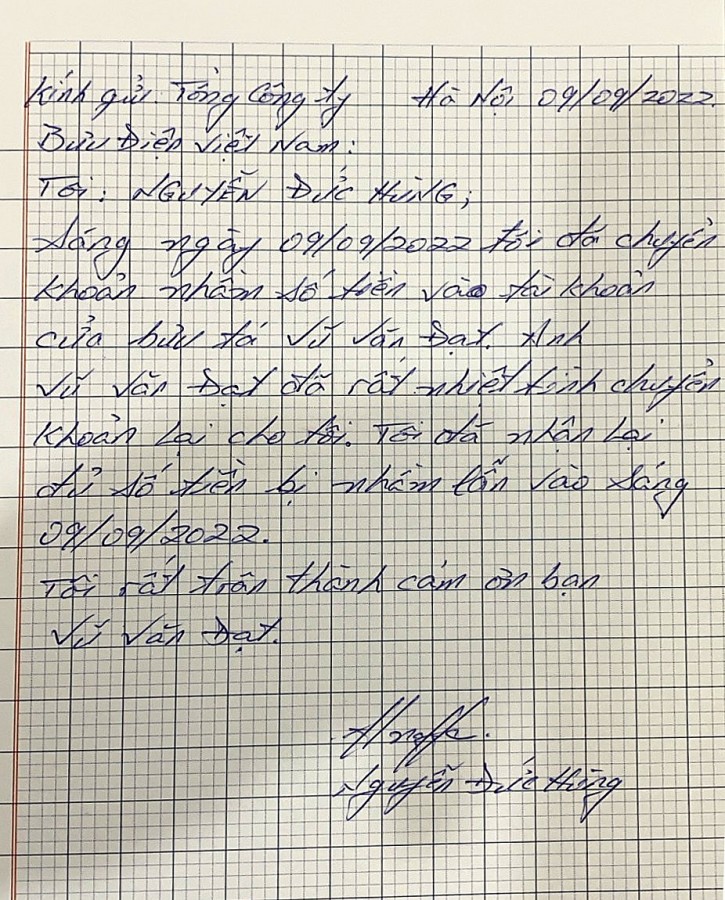 Kính gửi Tổng Công ty Hà Nội 09/09/2022.
Bưu Điện Việt Nam:
Tôi: NGUYỄN ĐỨC HÙNG;
Sáng ngày 09/09/2022 tôi đã chuyển
khoản nhầm số tiền vào tài khoản
của bưu tá Vũ Văn Đạt. Anh
Vũ Văn Đạt đã rất nhiệt tình chuyển
khoản lại cho tôi. Tôi đã nhận lại
đủ số tiền bị nhầm lẫn vào sáng
09/09/2022.
Tôi rất trân thành cám ơn bạn
Vũ Văn Đạt.
Nguyễn Đức Hùng